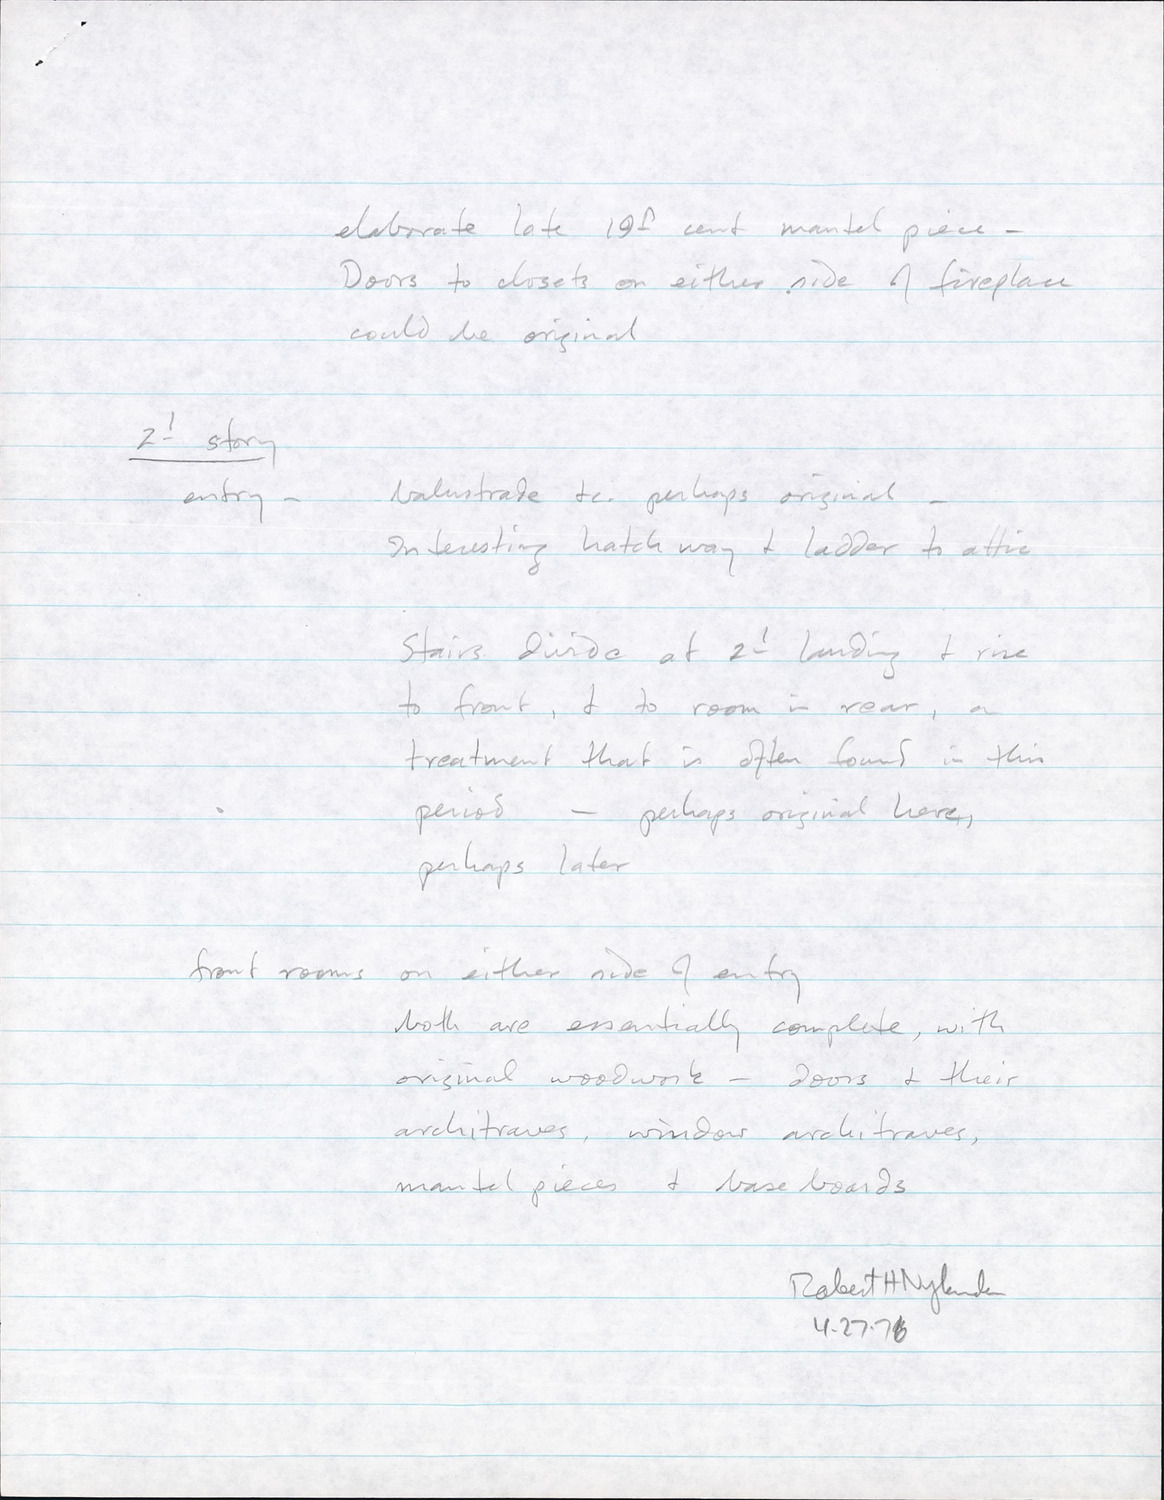 elaborate late 19th cent mantel piece –
Doors to closets on either side of fireplace
could be original
2d story
entry – balustrade &c. perhaps original –
Interesting hatch way & ladder to attic
Stairs divide at 2d landing & rise
to front, & to room in rear, a
treatment that is often found in this
period – perhaps original here,
perhaps later
front rooms on either side of entry
both are essentially complete, with
original woodwork – doors & their
architraves, window architraves,
mantel pieces & base boards
Robert H Nylander
4.27.76